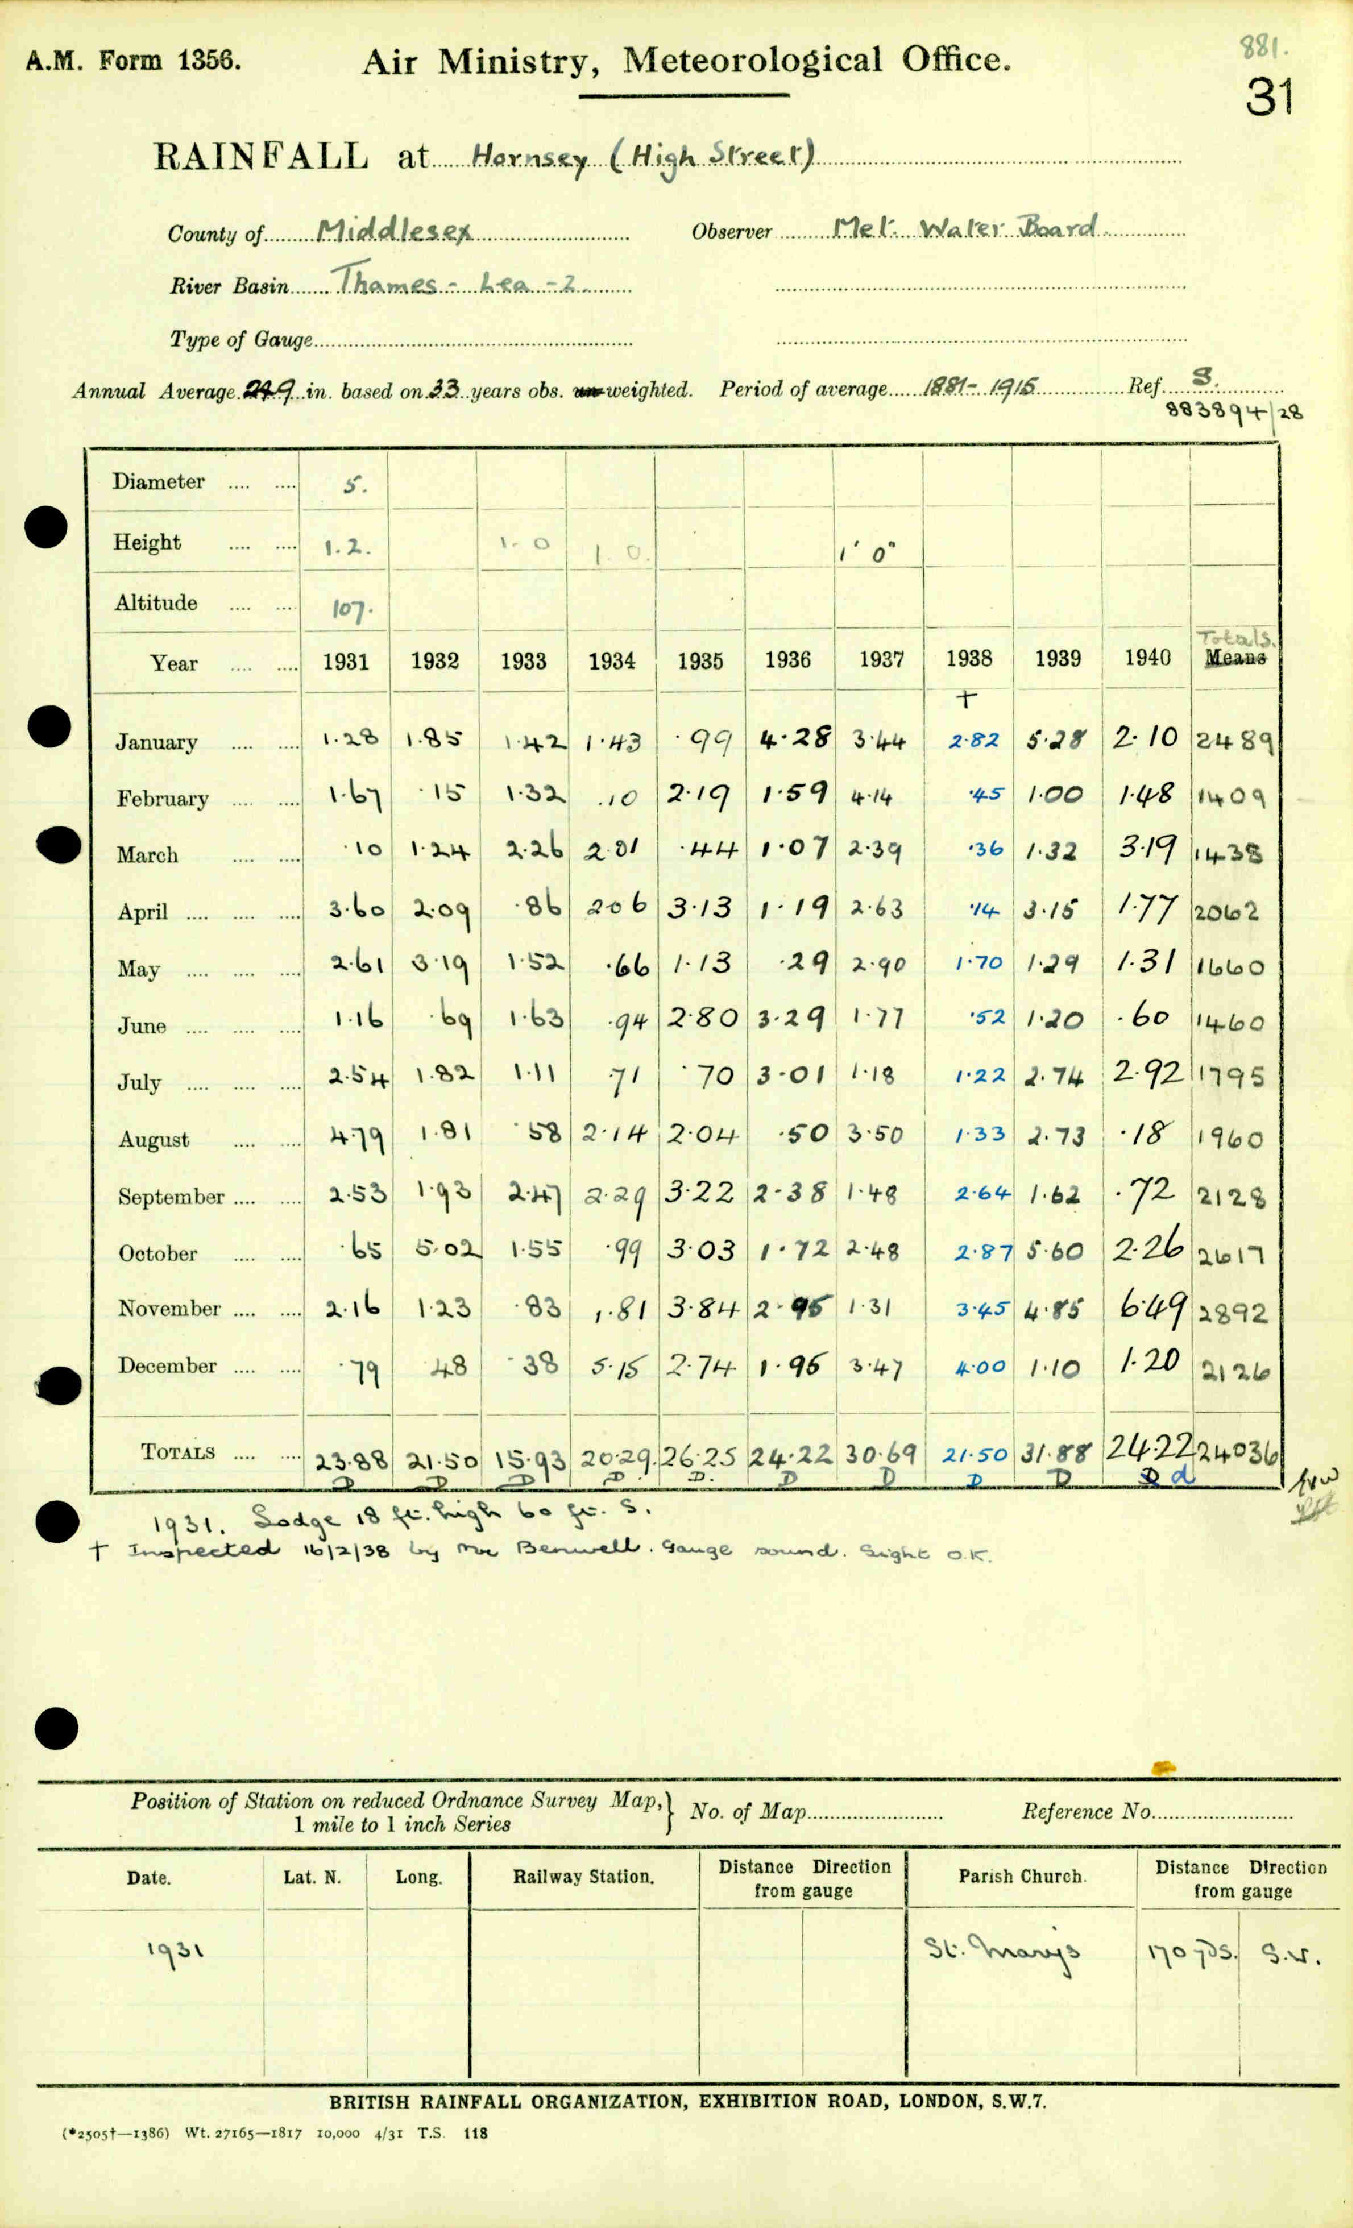 881.
A.M. Form 1356. Air Ministry, Meteorological Office.
31
RAINFALL at Hornsey (High Street)
County of Middlesex Observer Met. Water Board
River Basin Thames - Lea - 2
Type of Gauge
Annual Average 24.9 in. based on 33 years obs. un-weighted. Period of average 1881 - 1915 Ref. S.
883894/28
Diameter .... .... 5.
Height .... .... 1.2. 1.0 1.0. 1'0"
Altitude .... .... 107.
Totals.
Year .... .... 1931 1932 1933 1934 1935 1936 1937 1938 1939 1940 Means
†
January .... .... 1.28 1.85 1.42 1.43 .99 4.28 3.44 2.82 5.28 2.10 2489
February .... .... 1.67 .15 1.32 .10 2.19 1.59 4.14 .45 1.00 1.48 1409
March .... .... .10 1.24 2.26 2.01 .44 1.07 2.39 .36 1.32 3.19 1438
April .... .... .... 3.60 2.09 .86 2.06 3.13 1.19 2.63 .14 3.15 1.77 2062
May .... .... .... 2.61 3.19 1.52 .66 1.13 .29 2.90 1.70 1.29 1.31 1660
June .... .... .... 1.16 .69 1.63 .94 2.80 3.29 1.77 .52 1.20 .60 1460
July .... .... .... 2.54 1.82 1.11 .71 .70 3.01 1.18 1.22 2.74 2.92 1795
August .... .... 4.79 1.81 .58 2.14 2.04 .50 3.50 1.33 2.73 .18 1960
September .... .... 2.53 1.93 2.47 2.29 3.22 2.38 1.48 2.64 1.62 .72 2128
October .... .... .65 5.02 1.55 .99 3.03 1.72 2.48 2.87 5.60 2.26 2617
November .... .... 2.16 1.23 .83 1.81 3.84 2.95 1.31 3.45 4.85 6.49 2892
December .... .... .79 .48 .38 5.15 2.74 1.95 3.47 4.00 1.10 1.20 2126
TOTALS .... .... 23.88 21.50 15.93 20.29 26.25 24.22 30.69 21.50 31.88 24.22 24036
D D D D D. D D D D D d
1931. Lodge 18 ft. high 60 ft. S.
† Inspected 16/2/38 by Mr Benwell. Gauge sound. Sight O.K.
Position of Station on reduced Ordnance Survey Map,} No. of Map Reference No.
1 mile to 1 inch Series
Date. Lat. N. Long. Railway Station. Distance Direction from gauge Parish Church. Distance Direction from gauge
1931 St. Mary's 170 yds. S.W.
BRITISH RAINFALL ORGANIZATION, EXHIBITION ROAD, LONDON, S.W.7.
(*2505†—1386) Wt. 27165—1817 10,000 4/31 T.S. 118